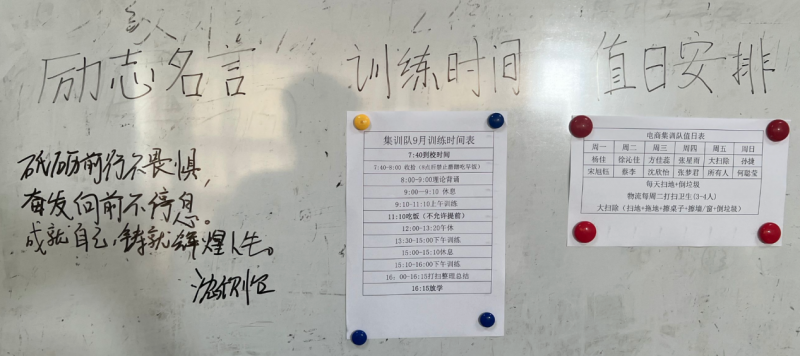 励志名言
砥砺前行不畏惧，
奋发向前不停息。
成就自己，铸就辉煌人生。
训练时间
集训队9月训练时间表
7:40到校时间
8:00-9:00理论背诵
9:00--9:10 休息
9:10-11:10上午训练
11:10吃饭（不允许提前）
12:00-13:20午休
13:30-15:00下午训练
15:00-15:10休息
15:10-16:00下午训练
16：00-16:15打扫整理总结
16:15放学
值日安排
电商集训队值日表
周一 周二 周三 周四 周五 周日
杨佳 徐沁佳 方佳蕊 张星雨 大扫除 孙婕
宋旭钰 蔡李 沈欣怡 张梦君 所有人 何聪莹
每天扫地+倒垃圾
物流每周二打扫卫生（3-4人）
大扫除（扫地+拖地+擦桌子+擦墙/窗+倒垃圾）